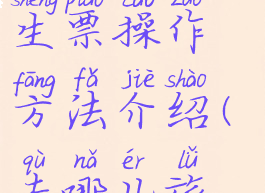 shēng piào cāo zuò
生票操作
fāng fǎ jiè shào
方法介绍(
qù nǎ ér lǚ
去哪儿旅